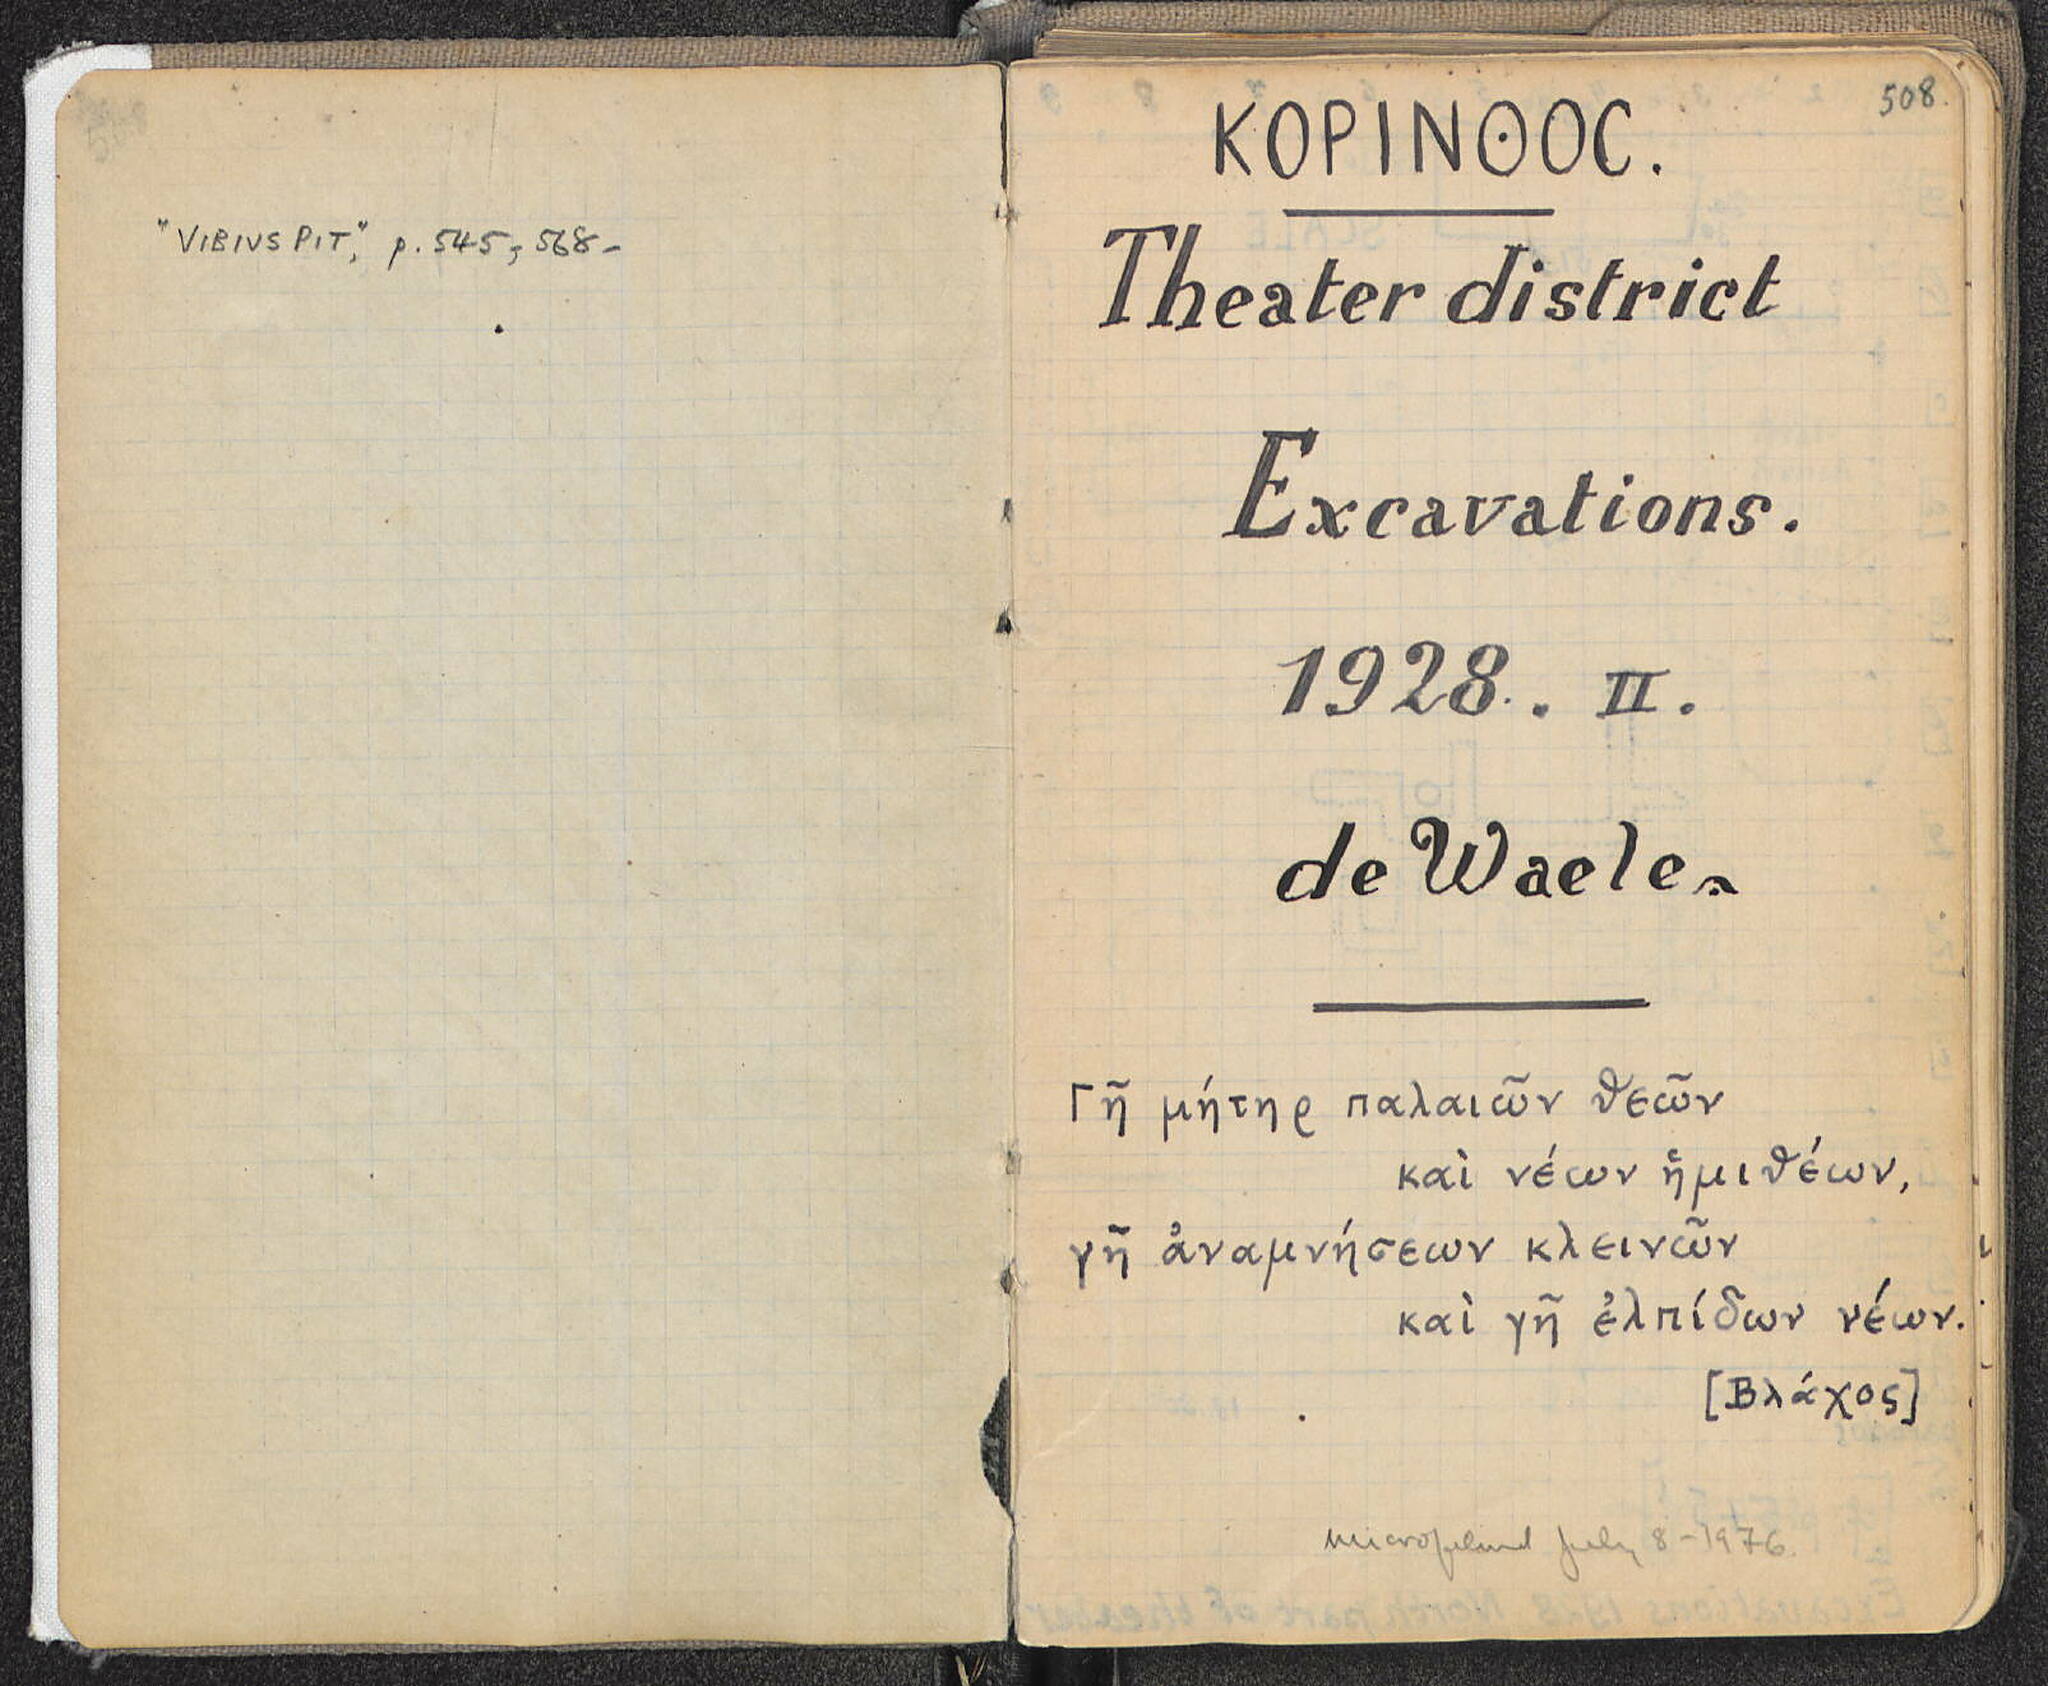 "VIBIUS PIT," p. 545, 568-
508.
ΚΟΡΙΝΘΟC.
Theater district
Excavations.
1928. II.
de Waele.
Γῆ μήτηρ παλαιῶν θεῶν
καὶ νέων ἡμιθέων,
γῆ ἀναμνήσεων κλεινῶν
καὶ γῆ ἐλπίδων νέων.
[Βλάχος]
Microfilmed July 8-1976.